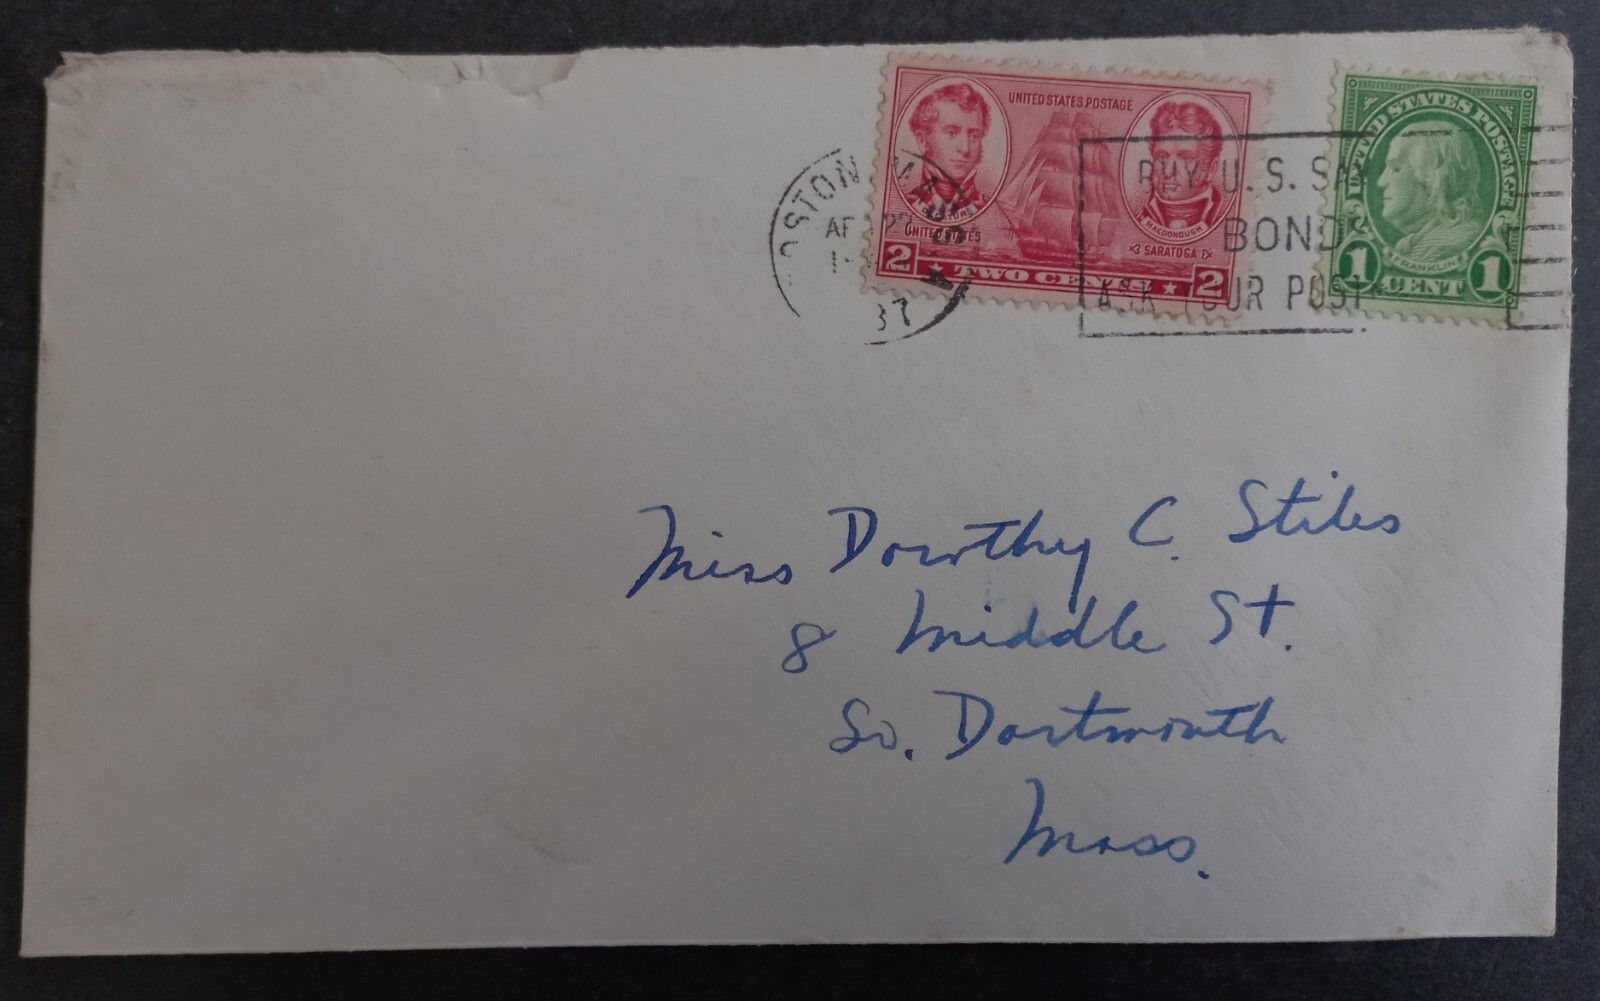 UNITED STATES POSTAGE
UNITED STATES
MACDONOUGH
SARATOGA
2 TWO CENTS 2
UNITED STATES POSTAGE
FRANKLIN
1 CENT 1
BOSTON, MASS.
37
BUY U. S. SAV
BONDS
ASK YOUR POST
Miss Dorothy C. Stiles
8 Middle St.
So. Dartmouth
Mass.